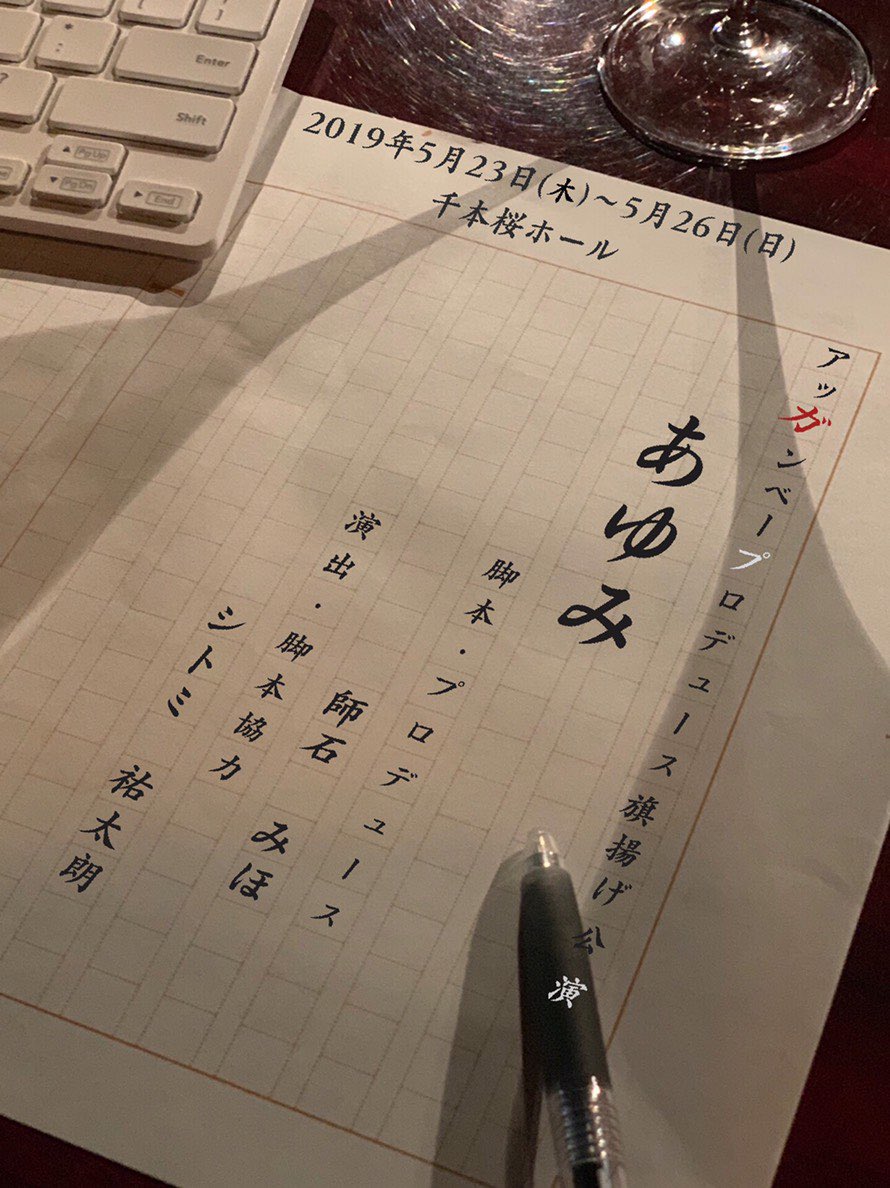 2019年5月23日(木)～5月26日(日)
千本桜ホール
アッガンベープロデュース旗揚げ公演
あゆみ
脚本・プロデュース
師石 みほ
演出・脚本協力
シトミ 祐太朗
Enter
Shift
PgUp
PgDn
End